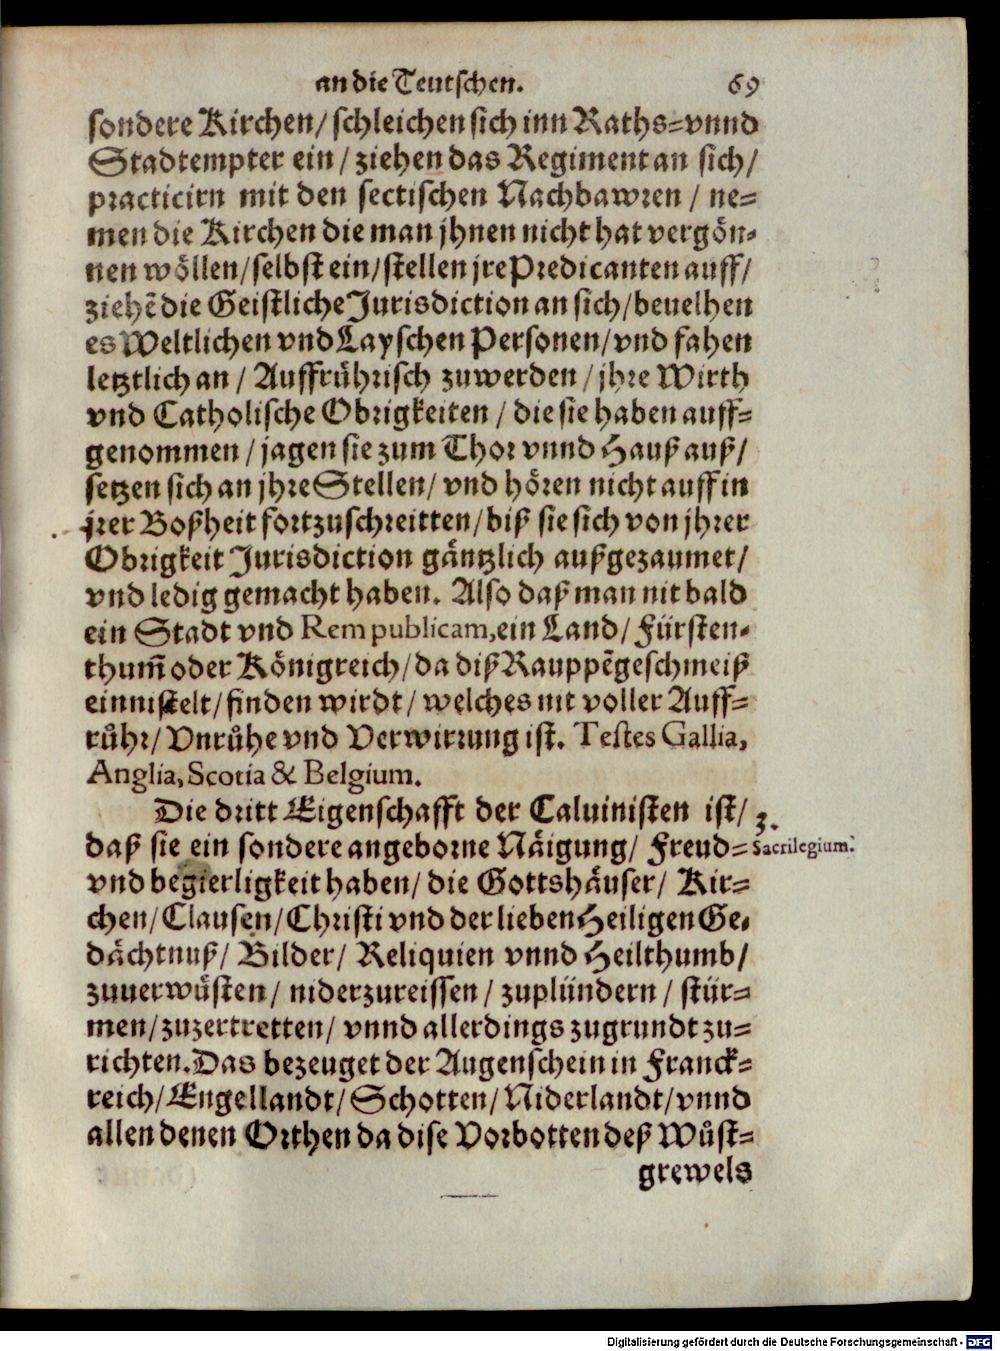 an die Teutschen. 69
sondere Kirchen/ schleichen sich inn Raths=vnnd
Stadtempter ein/ ziehen das Regiment an sich/
practicirn mit den sectischen Nachbawren / ne=
men die Kirchen die man jhnen nicht hat vergön=
nen wöllen/selbst ein/stellen jre Predicanten auff/
ziehē die Geistliche Jurisdiction an sich/beuelhen
es Weltlichen vnd Layschen Personen/vnd fahen
letztlich an / Auffrührisch zuwerden /jhre Wirth
vnd Catholische Obrigkeiten / die sie haben auff=
genommen /jagen sie zum Thor vnnd Hauß auß/
setzen sich an jhre Stellen/ vnd hören nicht auff in
jrer Boßheit fortzuschreitten/biß sie sich von jhrer
Obrigkeit Jurisdiction gäntzlich außgezaumet/
vnd ledig gemacht haben. Also daß man nit bald
ein Stadt vnd Rem publicam,ein Land/ Fürsten=
thum̄ oder Königreich/da diß Rauppēgeschmeiß
einnistelt/finden wirdt/welches nit voller Auff=
rühr/ Vnrühe vnd Verwirrung ist. Testes Gallia,
Anglia, Scotia & Belgium.
Die dritt Eigenschafft der Caluinisten ist/
3.
daß sie ein sondere angeborne Näigung/ Freud=
Sacrilegium.
vnd begierligkeit haben/ die Gottshäuser/ Kir=
chen/Clausen/Christi vnd der lieben Heiligen Ge=
dächtnuß/ Bilder/ Reliquien vnnd Heilthumb/
zuuerwüsten/ niderzureissen/ zuplündern / stür=
men/zuzertretten/ vnnd allerdings zugrundt zu=
richten.Das bezeuget der Augenschein in Franck=
reich/Engellandt/Schotten/Niderlandt/vnnd
allen denen Orthen da dise Vorbotten deß Wüst=
grewels
Digitalisierung gefördert durch die Deutsche Forschungsgemeinschaft - DFG